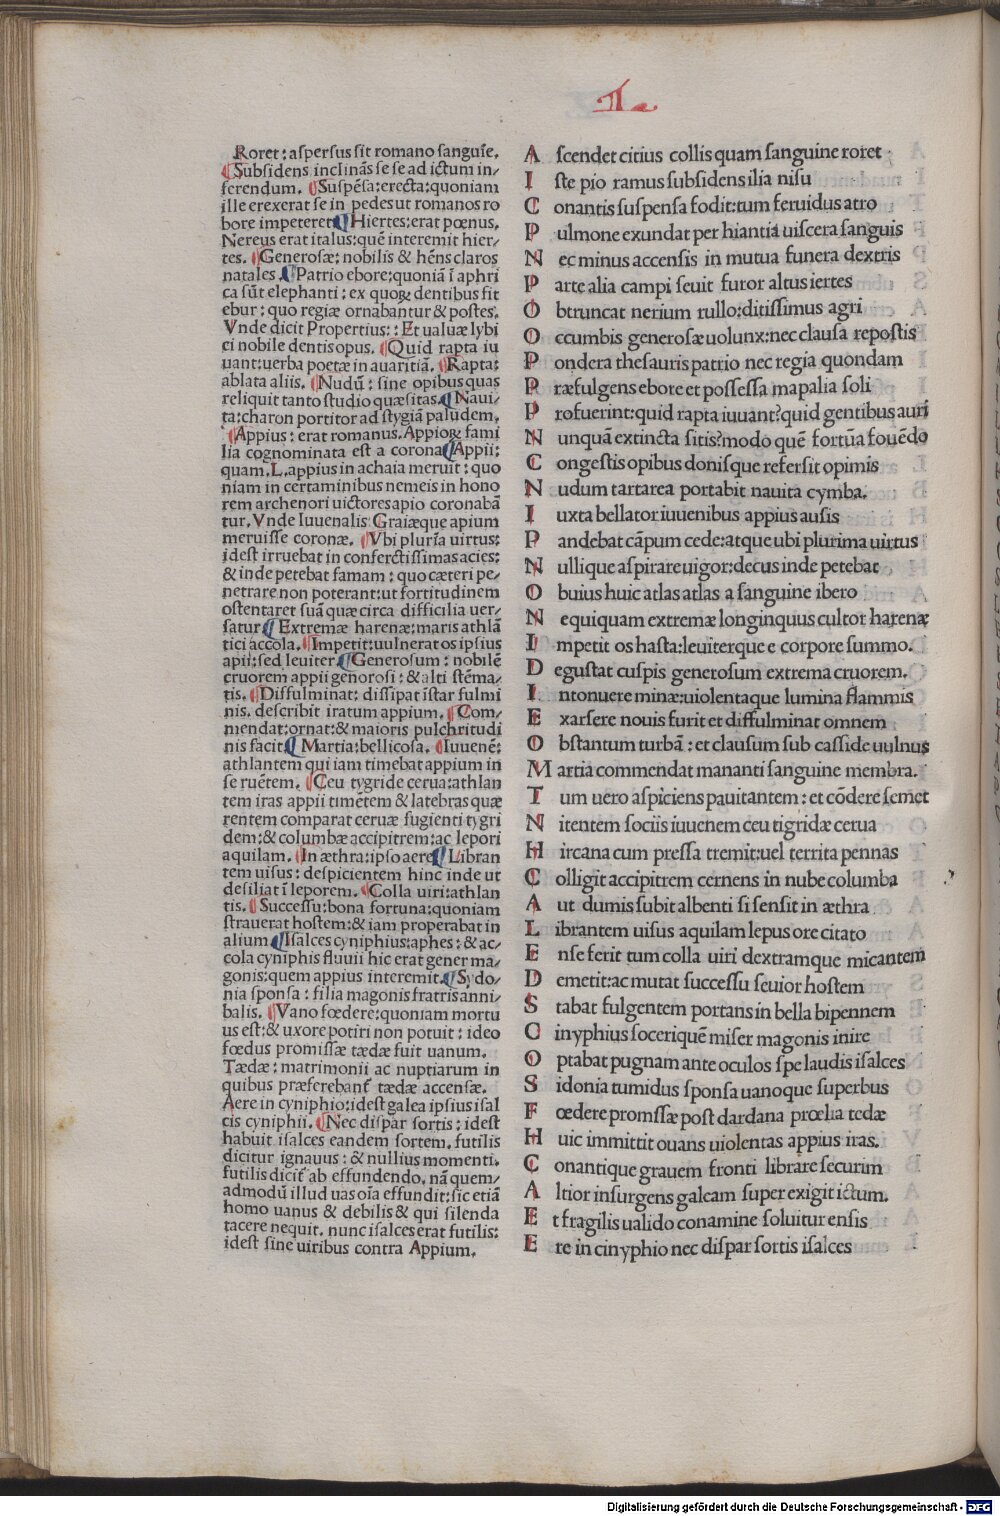 Roret: aspersus sit romano sanguie.
Subsidens inclinãs se se ad ictum in/
ferendum. Suspẽsa: erecta: quoniam
ille erexerat se in pedes ut romanos ro
bore impeteret Hiertes: erat pœnus.
Nereus erat italus: quẽ interemit hier/
tes. Generosæ: nobilis & hẽns claros
natales. Patrio ebore: quoniã ĩ aphri
ca sũt elephanti: ex quoꝝ dentibus fit
ebur: quo regiæ ornabantur & postes.
Vnde dicit Propertius: : Et ualuæ lyby
ci nobile dentis opus. Quid rapta iu
uant: uerba poetæ in auaritiã. Rapta:
ablata aliis. Nudũ: sine opibus quas
reliquit tanto studio quæsitas. Naui/
ta: charon portitor ad stygiã paludem.
Appius: erat romanus. Appioꝝ fami
lia cognominata est a corona Appii:
quam. L. appius in achaia meruit: quo
niam in certaminibus nemeis in hono
rem archenori uictores apio coronabã
tur. Vnde Iuuenalis Graiæque apium
meruisse coronæ. Vbi plurĩa uirtus:
idest irruebat in confertissimas acies:
& inde petebat famam: quo cæteri pe/
netrare non poterant: ut fortitudinem
ostentaret suã quæ circa difficilia uer/
satur Extremæ harenæ: maris athlã
tici accola. Impetit: uulnerat os ipsius
apii: sed leuiter Generosum: nobilẽ
cruorem appii genorosi: & alti stẽma/
tis. Diffulminat: dissipat ĩstar fulmi
nis. describit iratum appium. Com/
mendat: ornat: & maioris pulchritudi
nis facit Martia: bellicosa. Iuuenẽ:
athlantem qui iam timebat appium in
se ruẽtem. Ceu tygride cerua: athlan
tem iras appii timẽtem & latebras quæ
rentem comparat ceruæ fugienti tygri
dem: & columbæ accipitrem: ac lepori
aquilam. In æthra: ipso aere Libran
tem uisus: despicientem hinc inde ut
desiliat ĩ leporem. Colla uiri: athlan
tis. Successu: bona fortuna: quoniam
strauerat hostem: & iam properabat in
alium Isalces cyniphius: aphes: & ac/
cola cyniphis fluuii hic erat gener ma/
gonis: quem appius interemit. Sydo/
nia sponsa: filia magonis fratris anni/
balis. Vano fœdere: quoniam mortu
us est: & uxore potiri non potuit: ideo
fœdus promissæ tædæ fuit uanum.
Tædæ: matrimonii ac nuptiarum in
quibus præferebant̃ tædæ accensæ.
Aere in cyniphio: idest galea ipsius isal
cis cyniphii. Nec dispar sortis: idest
habuit isalces eandem sortem. futilis
dicitur ignauus: & nullius momenti.
futilis dicit̃ ab effundendo. nã quem/
admodũ illud uas oĩa effundit: sic etiã
homo uanus & debilis & qui silenda
tacere nequit. nunc isalces erat futilis:
idest sine uiribus contra Appium.
A scendet citius collis quam sanguine roret
I ste pio ramus subsidens ilia nisu
C onantis suspensa fodit: tum feruidus atro
P ulmone exundat per hiantia uiscera sanguis
N ec minus accensis in mutua funera dextris
P arte alia campi seuit furor altus iertes
O btruncat nerium rullo: ditissimus agri
O ccumbis generosæ uolunx: nec clausa repostis
P ondera thesauris patrio nec regia quondam
P ræfulgens ebore et possessa mapalia soli
P rofuerint: quid rapta iuuant? quid gentibus auri
N unquã extincta sitis? modo quẽ fortũa fouẽdo
C ongestis opibus donisque refersit opimis
N udum tartarea portabit nauita cymba.
I uxta bellator iuuenibus appius ausis
P andebat cãpum cede: atque ubi plurima uirtus
N ullique aspirare uigor: decus inde petebat
O buius huic atlas atlas a sanguine ibero
N equiquam extremæ longinquius cultor harenæ
I mpetit os hasta: leuiterque e corpore summo.
D egustat cuspis generosum extrema cruorem.
I ntonuere minæ: uiolentaque lumina flammis
E xarsere nouis furit et diffulminat omnem
O bstantum turbã: et clausum sub casside uulnus
M artia commendat mananti sanguine membra.
T um uero aspiciens pauitantem: et cõdere semet
N itentem sociis iuuenem ceu tigridæ cerua
H ircana cum pressa tremit: uel territa pennas
C olligit accipitrem cernens in nube columba
A ut dumis subit albenti si sensit in æthra
L ibrantem uisus aquilam lepus ore citato
E nse ferit tum colla uiri dextramque micantem
D emetit: ac mutat successu seuior hostem
S tabat fulgentem portans in bella bipennem
C inyphius soceriquẽ miser magonis inire
O ptabat pugnam ante oculos spe laudis isalces
S idonia tumidus sponsa uanoque superbus
F œdere promssæ post dardana prœlia tedæ
H uic immittit ouans uiolentas appius iras.
C onantique grauem fronti librare securim
A ltior insurgens galeam super exigit ictum.
E t fragilis ualido conamine soluitur ensis
E re in cinyphio nec dispar sortis isalces
Digitalisierung gefördert durch die Deutsche Forschungsgemeinschaft - DFG